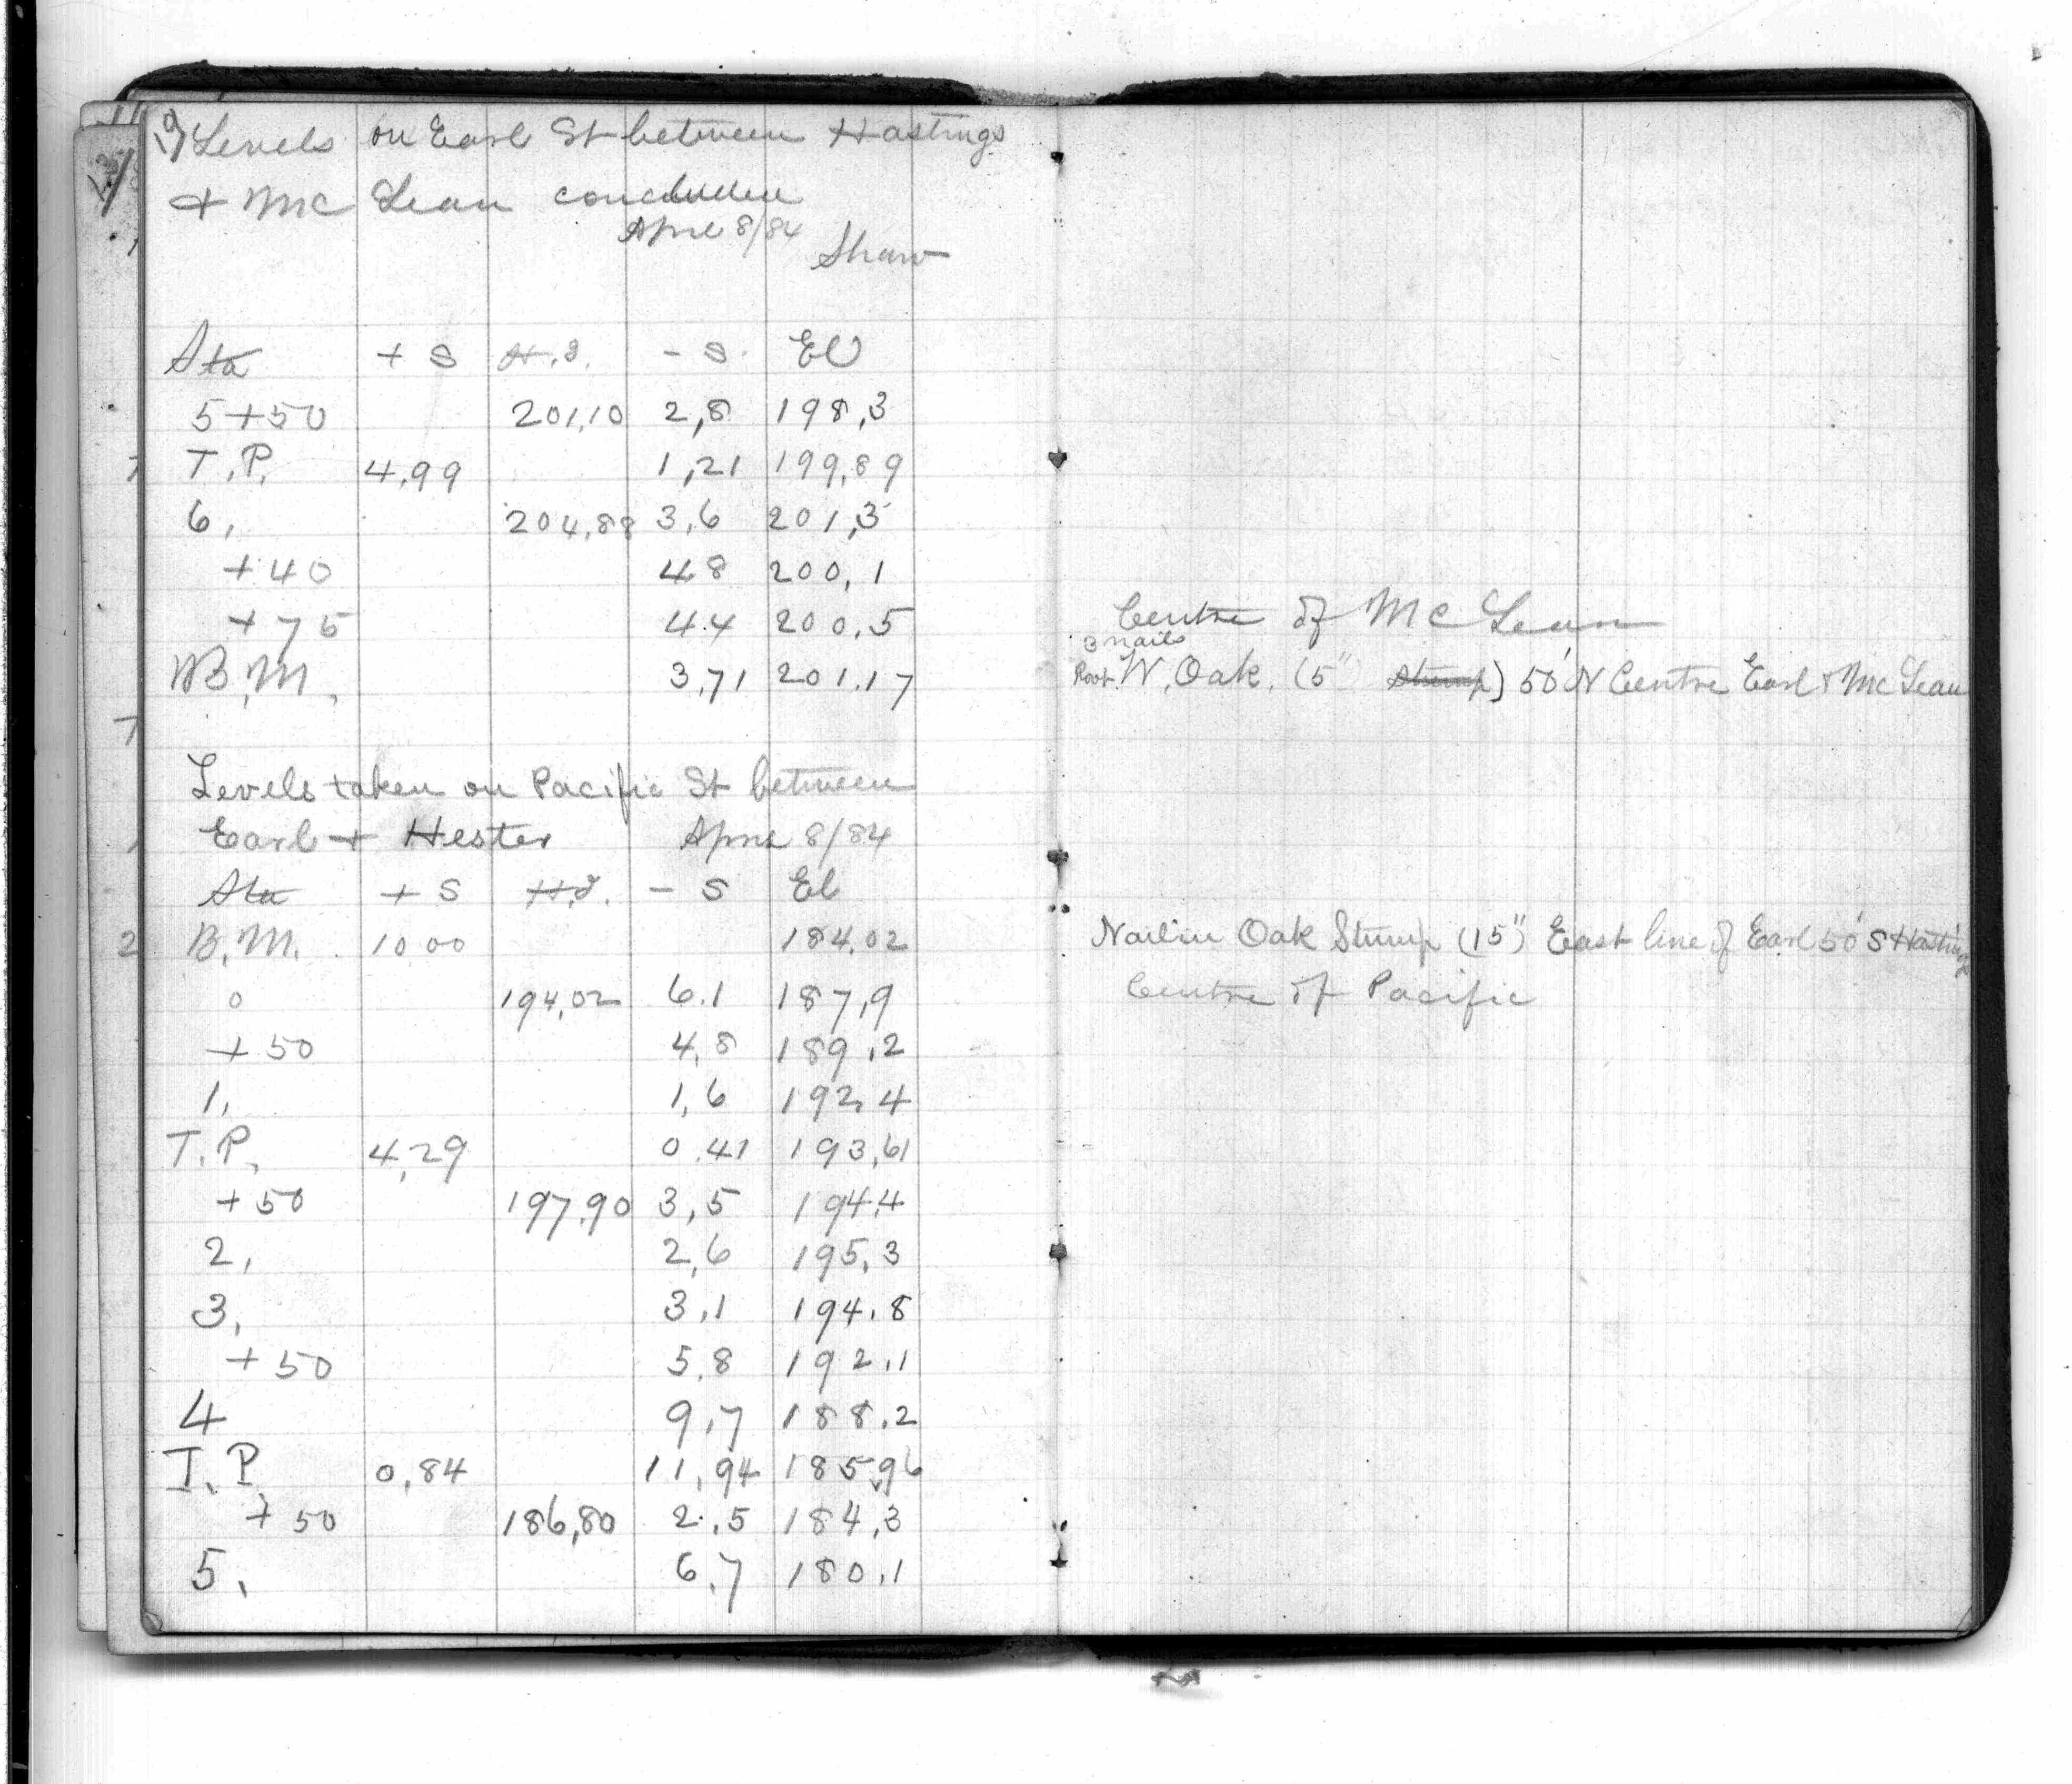 19 Levels on Earl St between Hastings
+ McLean concluded
April 8/84 Shaw
Sta + S H.I. - S. El
5+50 201,10 2,8 198,3
T.P. 4,99 1,21 199,89
6, 204,88 3,6 201,3
+40 4.8 200,1
+75 4.4 200,5 Centre of McLean
3 nails
B.M. 3,71 201.17 Root W. Oak. (5" Stump) 50' N Centre Earl + McLean
Levels taken on Pacific St between
Earl + Hester April 8/84
Sta + S H.I. - S El
B.M. 10.00 184.02 Nail in Oak Stump (15") East line of Earl 50' S Hastings
0 194,02 6.1 187,9 Centre of Pacific
+50 4,8 189.2
1, 1,6 192.4
T.P. 4,29 0.41 193,61
+50 197.90 3,5 194.4
2, 2,6 195,3
3, 3,1 194.8
+50 5,8 192.1
4 9,7 188.2
T.P. 0,84 11,94 185,96
+50 186,80 2.5 184,3
5, 6,7 180.1